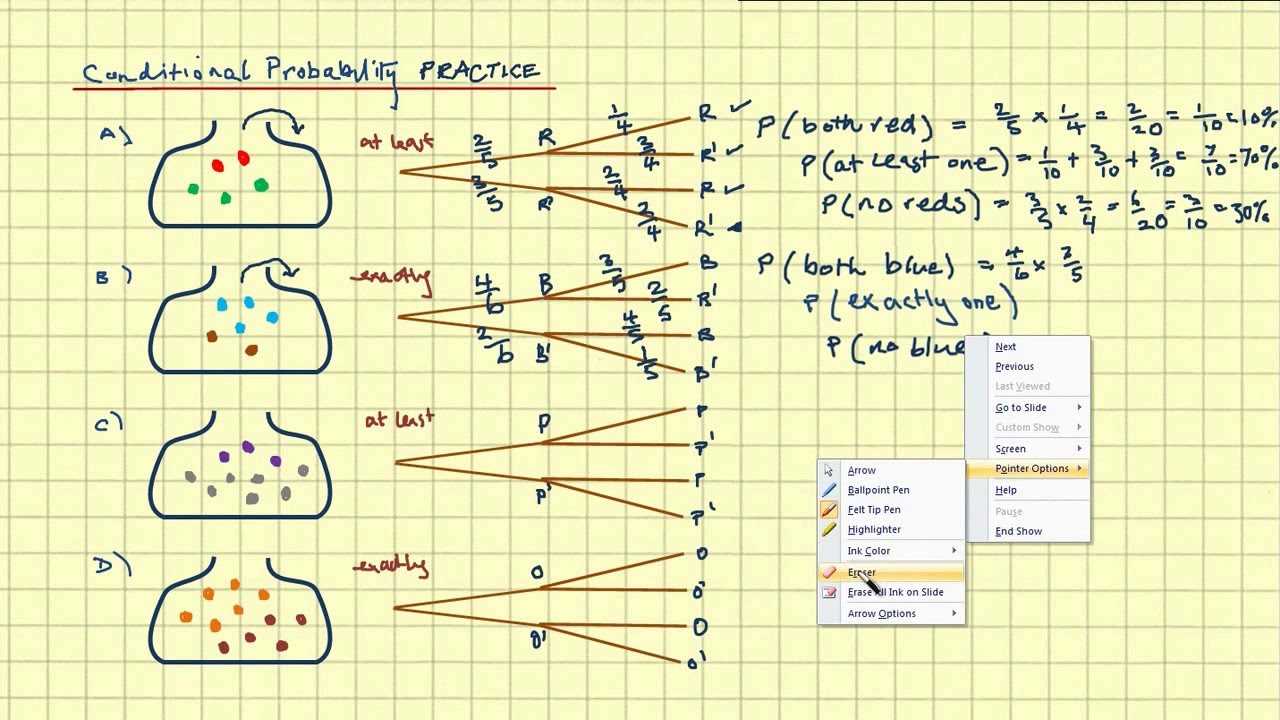 Conditional Probability PRACTICE
A)
at least
2/5 R 1/4 R ✓
3/4 R' ✓
3/5 R' 2/4 R ✓
2/4 R'
P(both red) = 2/5 × 1/4 = 2/20 = 1/10 = 10%
P(at least one) = 1/10 + 3/10 + 3/10 = 7/10 = 70%
P(no reds) = 3/5 × 2/4 = 6/20 = 3/10 = 30%
B)
exactly
4/6 B 3/5 B
2/5 B'
2/6 B' 4/5 B
1/5 B'
P(both blue) = 4/6 × 3/5
P(exactly one)
P(no blue
C)
at least
P P
P'
P' P
P'
D)
exactly
O O
O'
O' O
O'
Next
Previous
Last Viewed
Go to Slide
Custom Show
Screen
Pointer Options
Help
Pause
End Show
Arrow
Ballpoint Pen
Felt Tip Pen
Highlighter
Ink Color
Eraser
Erase All Ink on Slide
Arrow Options